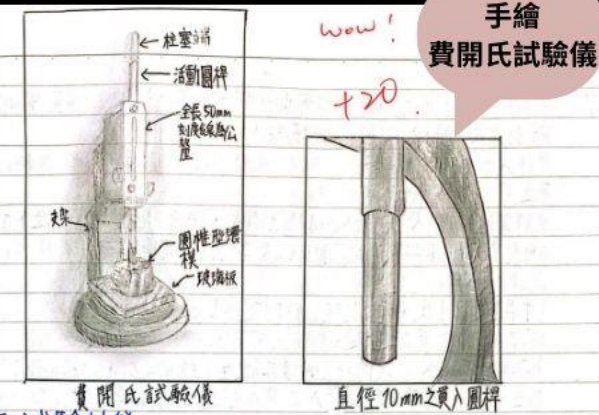 手繪
費開氏試驗儀
wow!
+20
柱塞端
活動圓桿
全長50mm
刻度線為公
釐
支架
圓椎型環
模
玻璃板
費開氏試驗儀
直徑10mm之貫入圓桿